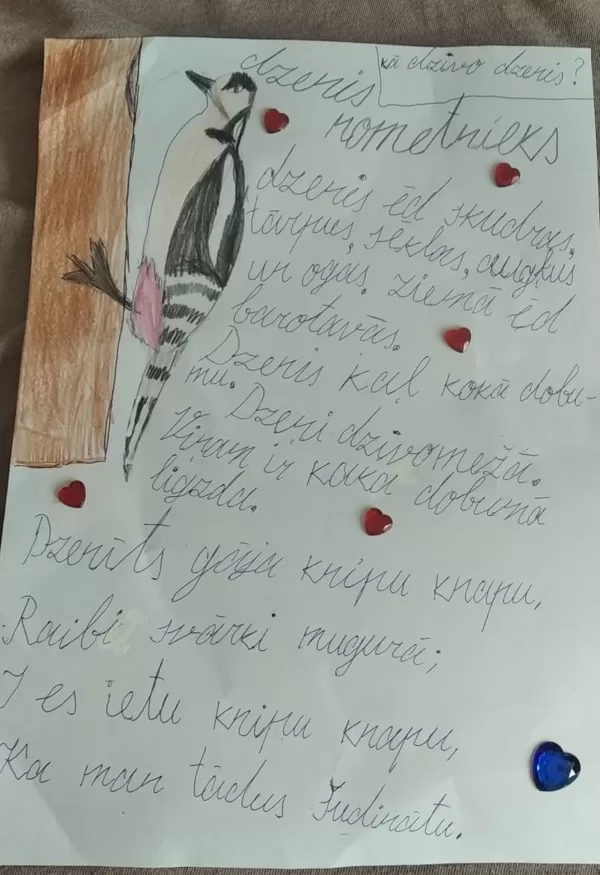 dzenis
kā dzīvo dzenis?
nometnieks
dzenis ēd skudras,
tārpus, sēklas, augļus
un ogas. ziemā ēd
barotavās.
Dzenis kaļ kokā dobu-
mu. Dzeņi dzīvo mežā.
Viņam ir koka dobumā
ligzda.
Dzenīts gāja knipu knapu,
Raibi svārki mugurā;
I es ietu knipu knapu,
Ka man tādus